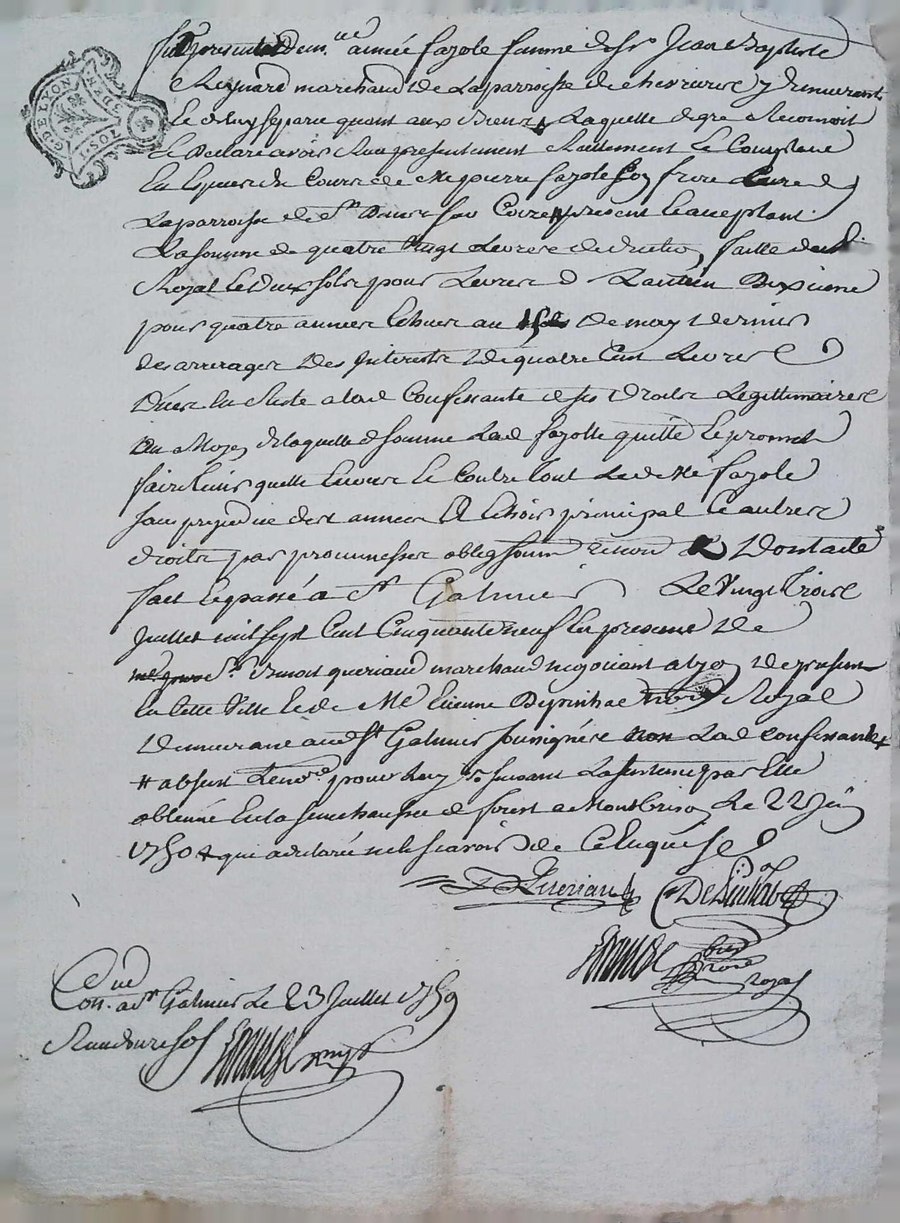 G. DE LYON
1 SOL
fut presente dem.lle aimée fayole femme de Sr Jean Baptiste
marchand de La parroisse de chevrieres y demeurant
et de luy separée quant aux Biens, Laquelle de gre a Reconnoit
et Declare avoir Reçu presentement Reellement et Comptant
en Especes de Cours de Me pierre fayole son frere Curé de
La parroisse de St present et acceptant
La somme de quatre Vingt Livres deduction faitte du
Royal et deux sols pour Livres d L'ancien Dixieme
pour quatre années Echues au 15e de may dernier
des arrerages des Interests de quatre Cent Livres
Dües en Reste a lad. Confessante de ses Droits Legittimaires
Au Moyen de laquelle somme Lad. fayolle quitte et promet
faire tenir quitte Envers et Contre tout Led. Me fayole
sans prejudice des années A Echoir principal et autres
droits par promesses oblig. soum. Renon. & Dont acte
fait et passé a St Galmier Le Vingt Trois
Juillet mil sept Cent Cinquante neuf En presence de
Sr. Benoit queriaud marchand negotiant a Lyon de present
en Cette Ville et de Me Etienne Royal
Demeurant aud. St Galmier soussignés non Lad. Confessante +
# absent et suivant La sentence par Elle
obtenüe En la senechaussée de forest a Montbrison Le 22 Juin
1750 + qui a declaré ne le sçavoir de Ce Enquise
Queriaud
nore royal
Con. a St Galmier Le 23 Juillet 1759
Reçu douze sols